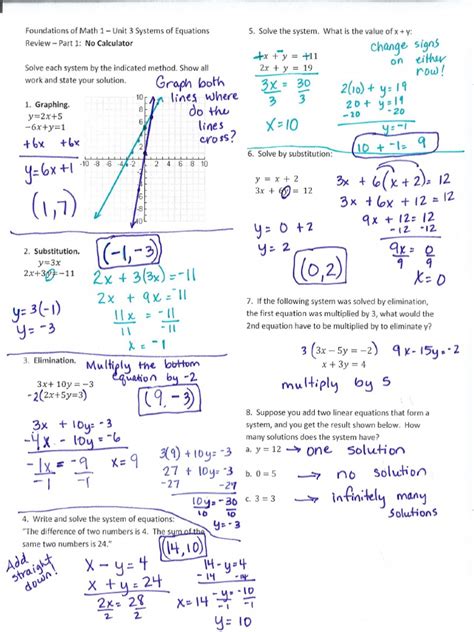 Foundations of Math 1 – Unit 3 Systems of Equations
Review – Part 1: No Calculator
Solve each system by the indicated method. Show all
work and state your solution.
Graph both
lines where
do the
lines
cross?
1. Graphing.
y=2x+5
-6x+y=1
+6x +6x
y=6x+1
(1,7)
2. Substitution.
(-1,-3)
y=3x
2x+3y=-11
2x + 3(3x) = -11
2x + 9x = -11
11x = -11
11 11
x = -1
y= 3(-1)
y= -3
3. Elimination.
Multiply the bottom
equation by -2
3x+ 10y = -3
-2(2x+5y=3)
(9,-3)
3x + 10y= -3
-4x - 10y = -6
-1x = -9
-1 -1
x=9
3(9) +10y= -3
27 + 10y= -3
-27 -27
10y = -30
10 10
y= -3
4. Write and solve the system of equations:
"The difference of two numbers is 4. The sum of the
same two numbers is 24."
(14,10)
Add
straight
down!
x - y = 4
x + y = 24
2x = 28
2 2
x = 14
14 - y= 4
-14 -14
-y = -10
-1 -1
y= 10
5. Solve the system. What is the value of x + y:
change signs
on either
row!
+x + y = +11
2x + y = 19
3x = 30
3 3
x=10
2(10) + y= 19
20 + y = 19
-20 -20
y= -1
10 + -1 = 9
6. Solve by substitution:
y = x + 2
3x + 6y = 12
3x + 6(x+2) = 12
3x + 6x + 12 = 12
9x + 12 = 12
-12 -12
9x = 0
9 9
x= 0
y= 0 +2
y= 2
(0,2)
7. If the following system was solved by elimination,
the first equation was multiplied by 3, what would the
2nd equation have to be multiplied by to eliminate y?
3 (3x – 5y = –2) 9x -15y= -2
x + 3y = 4
multiply by 5
8. Suppose you add two linear equations that form a
system, and you get the result shown below. How
many solutions does the system have?
a. y = 12 → one solution
b. 0 = 5 → no solution
c. 3 = 3 → infinitely many
solutions